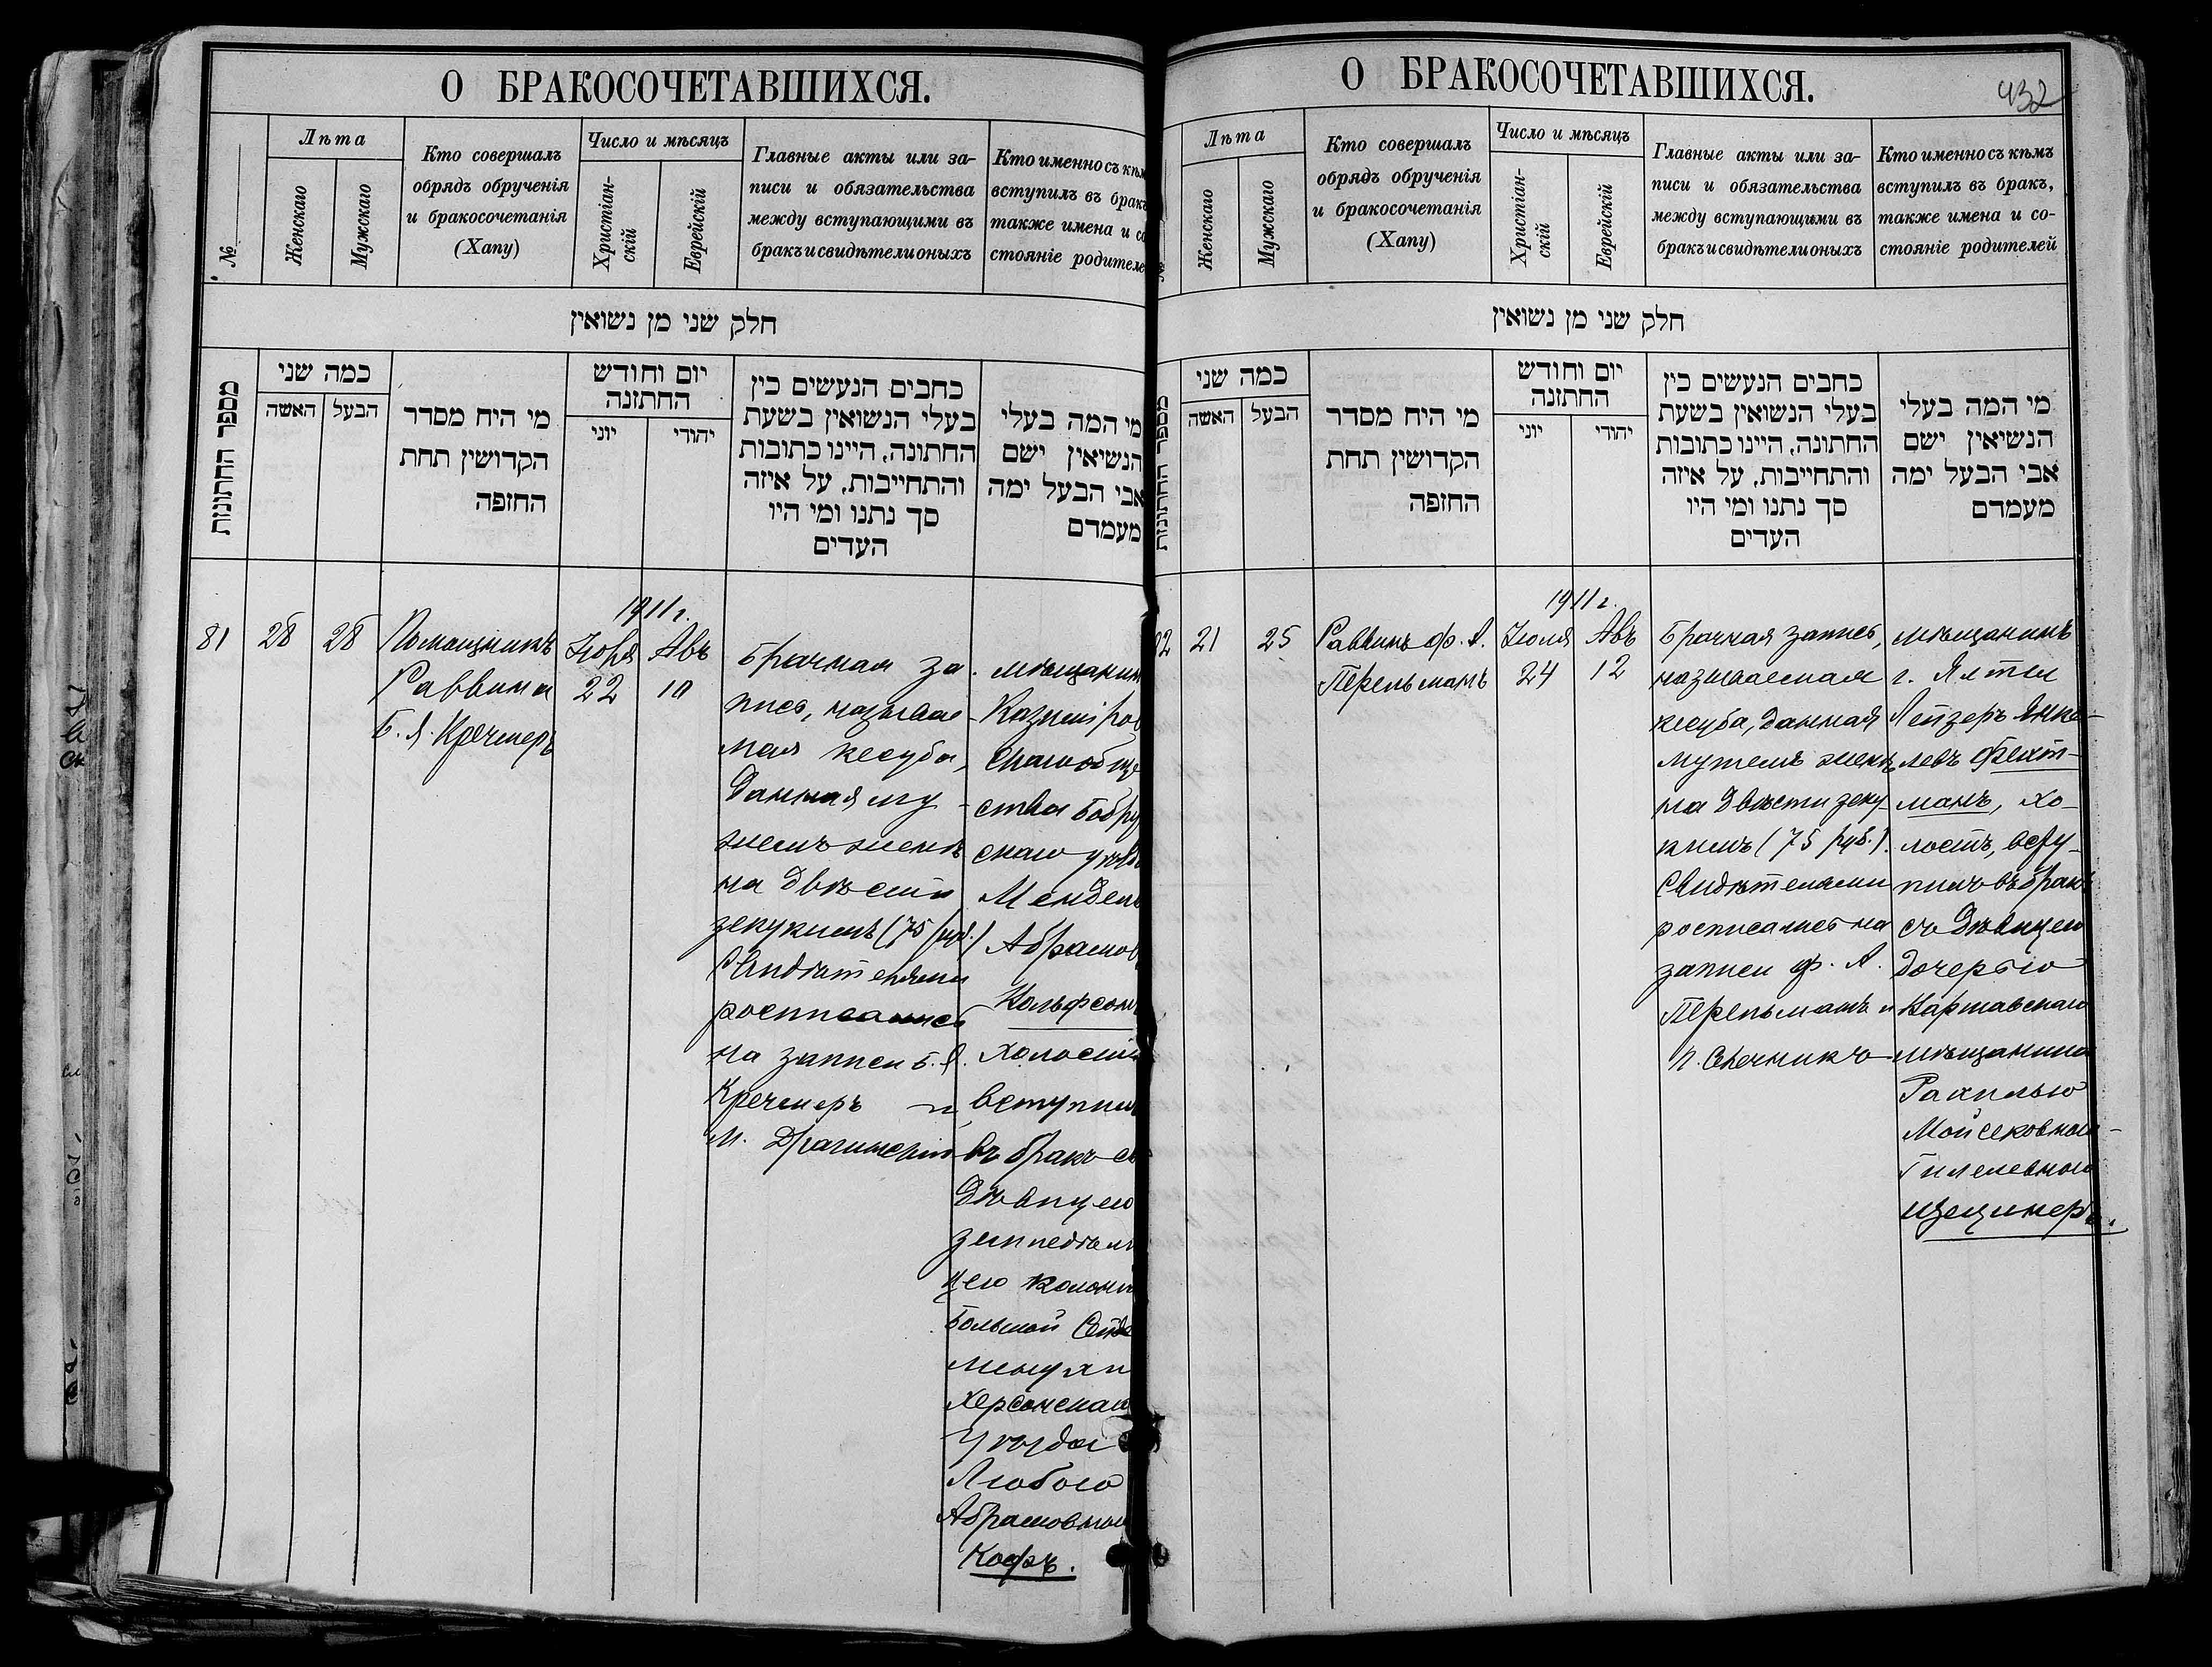 О БРАКОСОЧЕТАВШИХСЯ.
№
Лѣта
Женскаго
Мужскаго
Кто совершалъ
обрядъ обрученія
и бракосочетанія
(Хапу)
Число и мѣсяцъ
Христіан-
скій
Еврейскій
Главные акты или за-
писи и обязательства
между вступающими въ
бракъ и свидѣтели оныхъ
Кто именно съ кѣм
вступилъ въ бракъ
также имена и со
стояніе родителе
חלק שני מן נשואין
מספר החתונות
כמה שני
האשה
הבעל
מי היח מסדר
הקדושין תחת
החזפה
יום וחודש
החתזנה
יוני
יהודי
כחבים הנעשים כין
בעלי הנשואין בשעת
החתונה, היינו כתובות
והתחייבות, על איזה
סך נתנו ומי היו
העדים
מי המה בעלי
הנשיאין ישם
אבי הבעל ימה
מעמדם
81
28
28
Помощникъ
Раввина
Б. Я. Кречмеръ
1911 г.
Іюля
22
Авъ
10
Брачная за-
пись, называе-
мая кесуба,
данная му-
жемъ женѣ
на двѣсти
зекукимъ (75 руб.)
Свидѣтелями
росписались
на записи Б. Я.
Кречмеръ и
М. Драгинскій
мѣщанин
Казиміров
скаго обще
ства Бобруй
скаго уѣзд
Мендель
Абрамов
Вольфсон
холостъ
вступил
въ бракъ съ
дѣвицею
земледѣли
цею колоніи
Большой Сейде
минухи
Херсонскаго
Уѣзда
Любою
Абрамовною
Кофъ.
О БРАКОСОЧЕТАВШИХСЯ.
432
Лѣта
Женскаго
Мужскаго
Кто совершалъ
обрядъ обрученія
и бракосочетанія
(Хапу)
Число и мѣсяцъ
Христіан-
скій
Еврейскій
Главные акты или за-
писи и обязательства
между вступающими въ
бракъ и свидѣтели оныхъ
Кто именно съ кѣмъ
вступилъ въ бракъ,
также имена и со-
стояніе родителей
חלק שני מן נשואין
מספר החתונות
כמה שני
האשה
הבעל
מי היח מסדר
הקדושין תחת
החזפה
יום וחודש
החתזנה
יוני
יהודי
כחבים הנעשים כין
בעלי הנשואין בשעת
החתונה, היינו כתובות
והתחייבות, על איזה
סך נתנו ומי היו
העדים
מי המה בעלי
הנשיאין ישם
אבי הבעל ימה
מעמדם
82
21
25
Раввинъ ф. А.
Перельманъ
1911 г.
Іюля
24
Авъ
12
Брачная запись,
называемая
кесуба, данная
мужемъ женѣ
на двѣсти зеку-
кимъ (75 руб.).
Свидѣтелями
росписались на
записи ф. А.
Перельманъ и
П. Свечникъ
мѣщанинъ
г. Ялты
Лейзеръ Янке-
левъ Фехт-
манъ, хо-
лостъ, всту-
пилъ въ бракъ
съ дѣвицею
дочерью
Варшавскаго
мѣщанина
Рахилью
Мойсеювною-
Гилелевною
Щецинеръ.